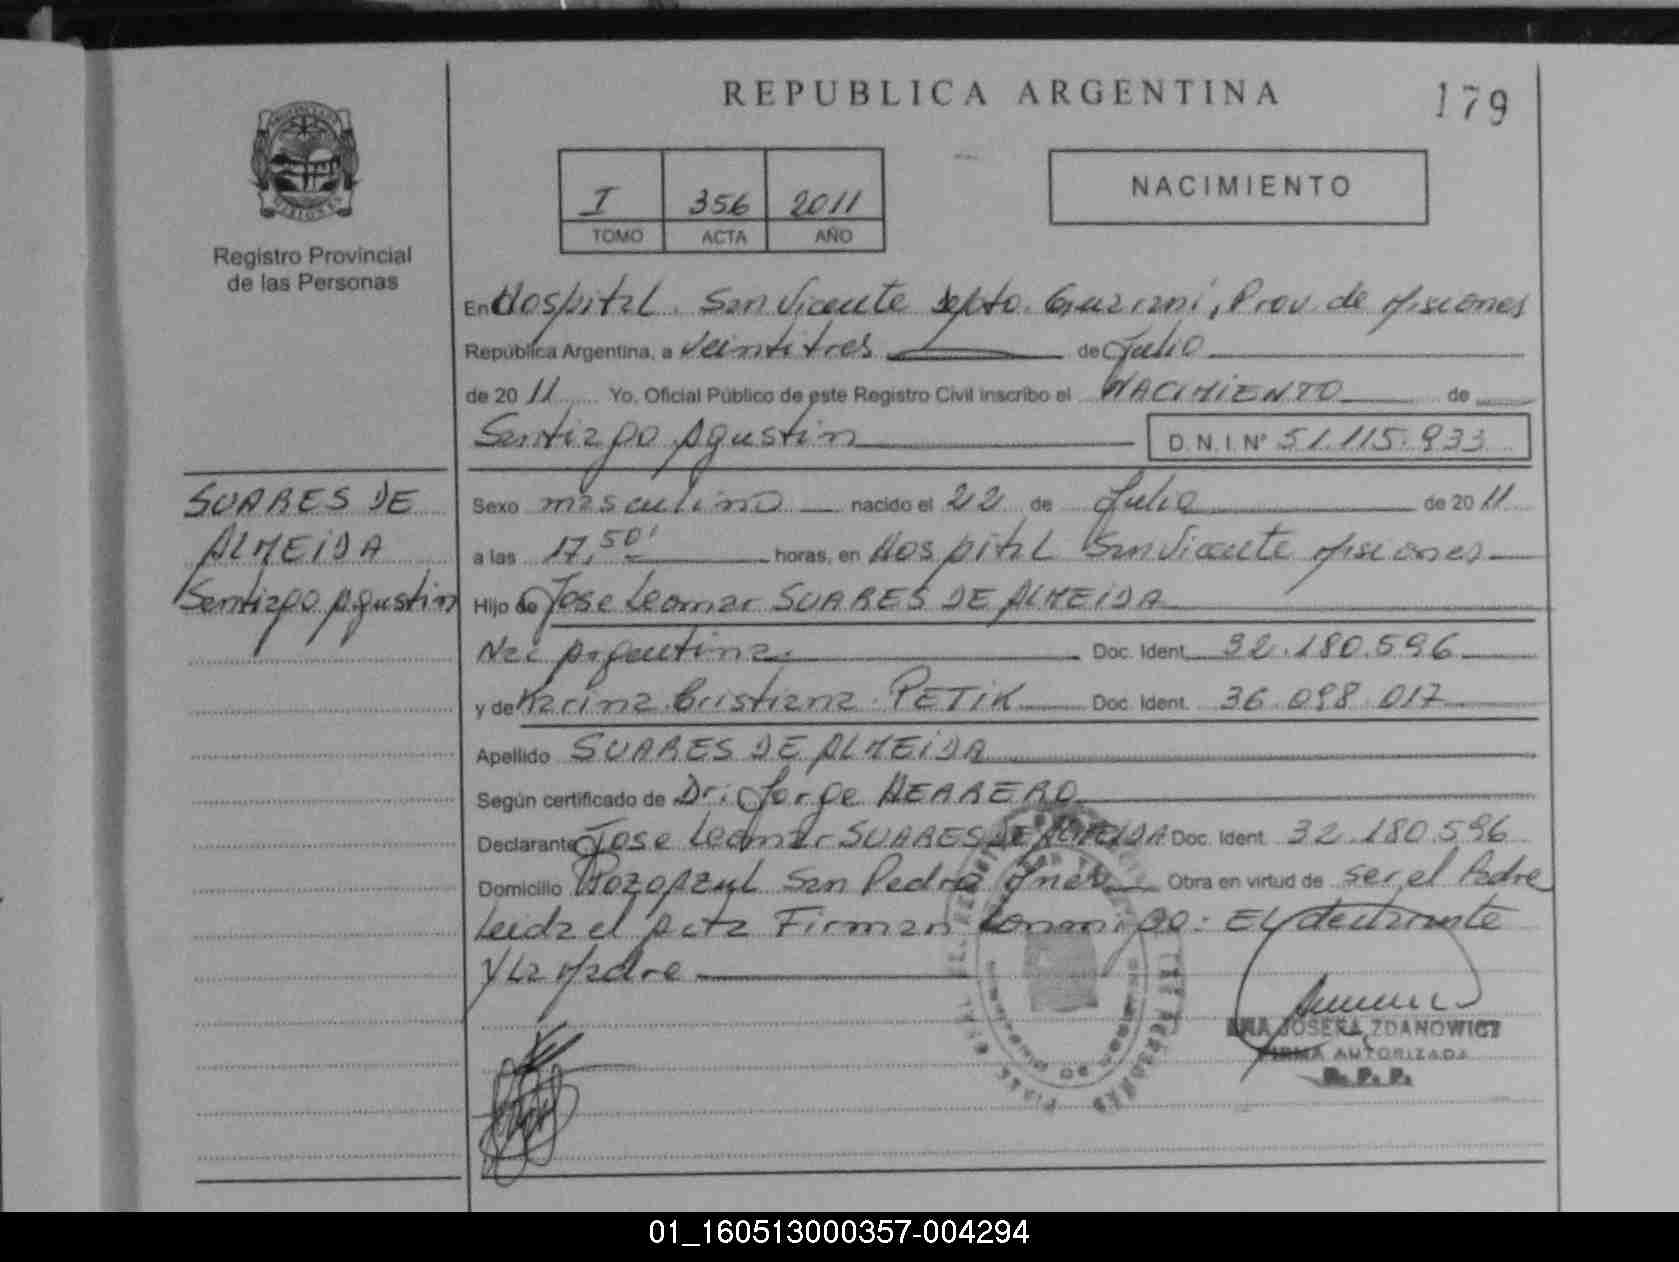 REPUBLICA ARGENTINA
179
I 356 2011
TOMO ACTA AÑO
NACIMIENTO
MISIONES
Registro Provincial
de las Personas
En Hospital San Vicente Depto. Guarani, Prov. de Misiones
República Argentina, a veintitres de Julio
de 2011 Yo, Oficial Público de este Registro Civil inscribo el NACIMIENTO de
Santiago Agustin D.N.I. Nº 51.115.933
SUARES DE
ALMEIDA
Santiago Agustin
Sexo masculino nacido el 22 de Julio de 2011
a las 17,50' horas, en Hospital San Vicente Misiones
Hijo de Jose Leomar SUARES DE ALMEIDA
Nac Argentina. Doc. Ident. 32.180.596
y de Karina Cristiana PETIK Doc. Ident. 36.098.017
Apellido SUARES DE ALMEIDA
Según certificado de Dr: Jorge HERRERO
Declarante Jose Leomar SUARES DE ALMEIDA Doc. Ident. 32.180.596
Domicilio Pozo Azul San Pedro Mnes Obra en virtud de ser el Padre
Leida el Acta Firman Conmigo: El declarante
y La Madre
ANA JOSEFA ZDANOWICZ
FIRMA AUTORIZADA
R.P.P.
01_160513000357-004294